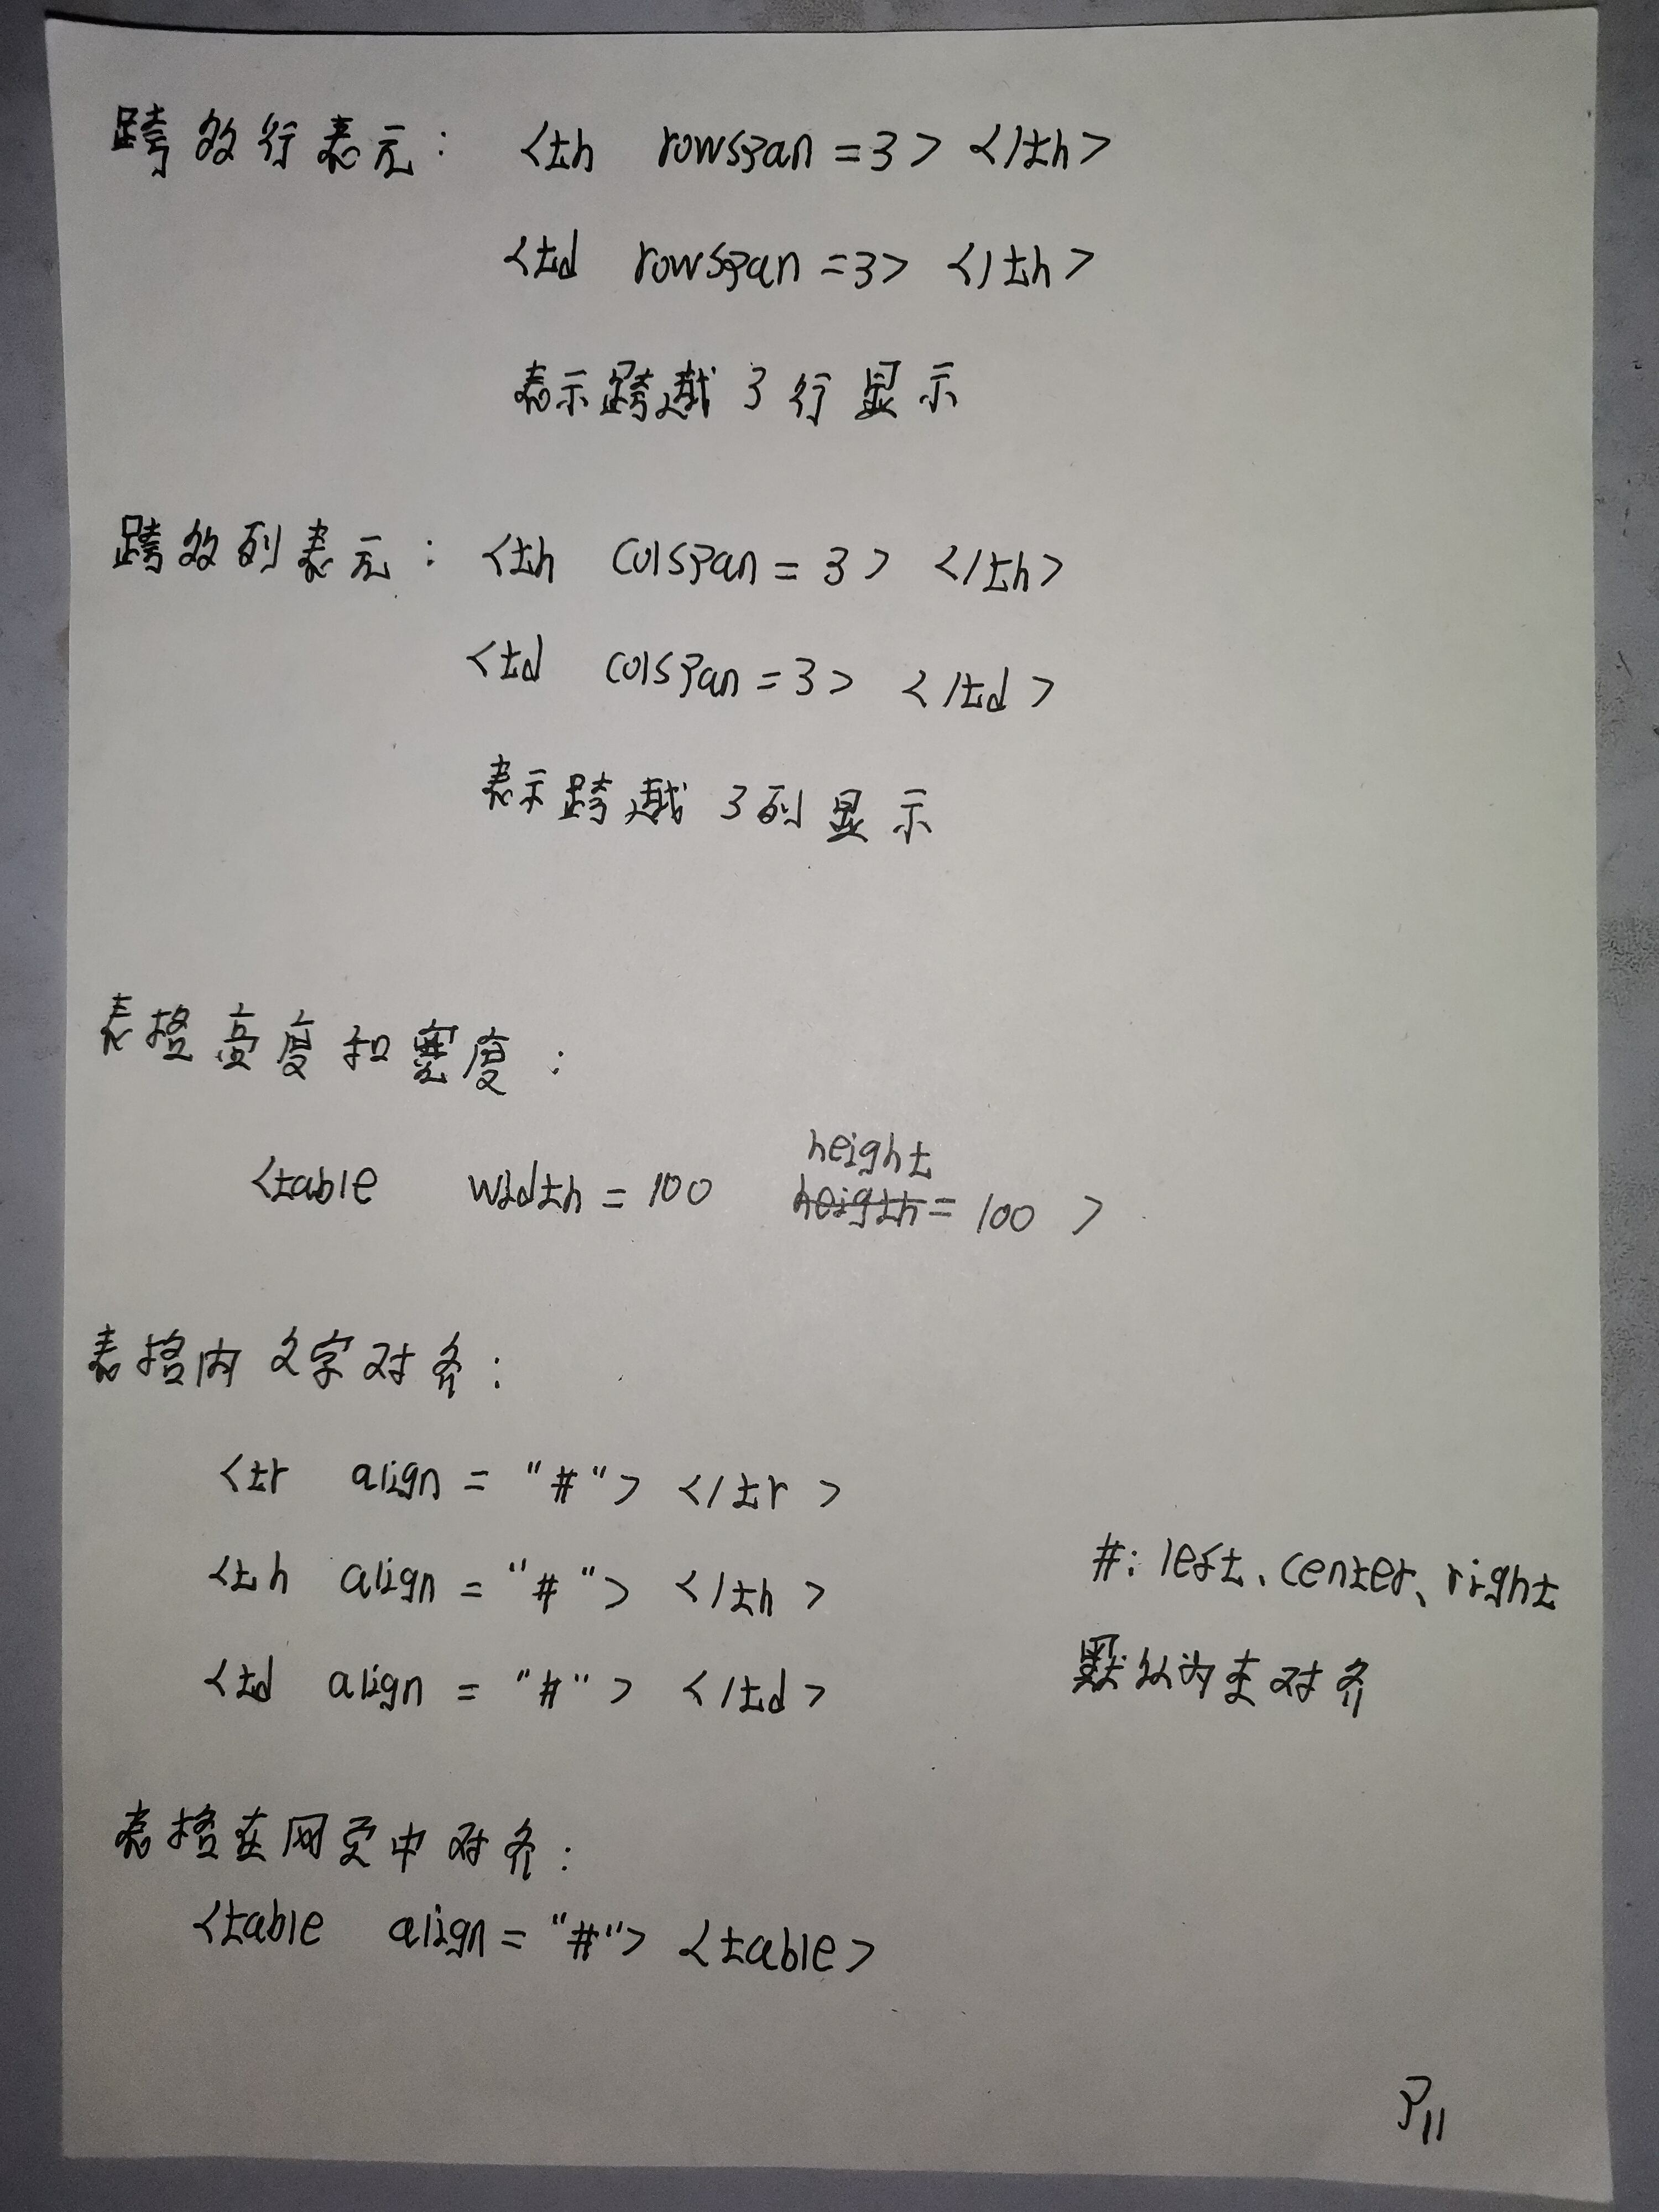 跨多行表元: <th rowspan =3> </th>
<td rowspan =3> </th>
表示跨越3行显示
跨多列表元: <th colspan = 3> </th>
<td colspan = 3> </td>
表示跨越3列显示
表格高度和宽度:
height
<table width = 100 heigth = 100 >
表格内文字对齐:
<tr align = "#"> </tr >
<th align = "#"> </th >
#: left、center、right
<td align = "#"> </td>
默认为左对齐
表格在网页中对齐:
<table align = "#"> <table>
P11